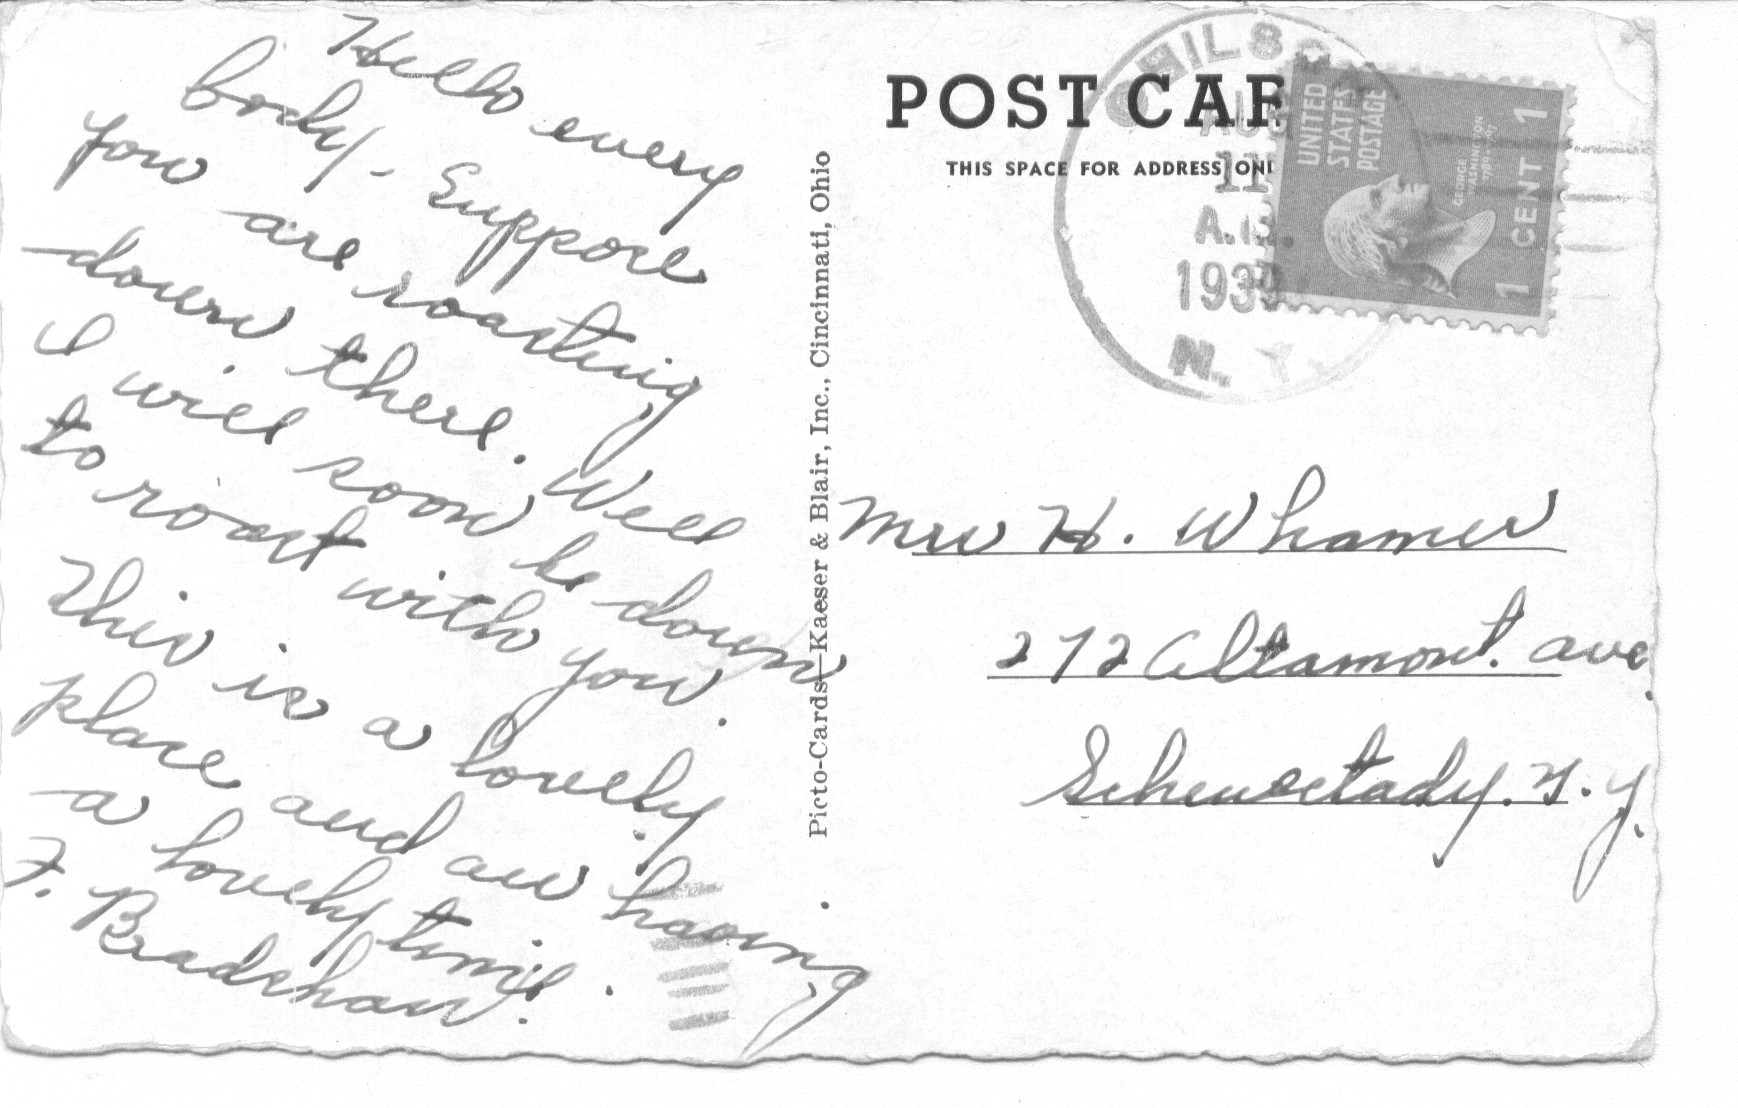 Hello every
body - Suppose
you are roasting
down there. Well
I will soon be down
to roast with you.
This is a lovely
place and am having
a lovely time.
F. Bradshaw.
Picto-Cards—Kaeser & Blair, Inc., Cincinnati, Ohio
POST CAR
THIS SPACE FOR ADDRESS ONL
AUG
11
A.M.
193
N. Y.
UNITED
STATES
POSTAGE
GEORGE
WASHINGTON
1789-1797
1 CENT 1
Mrs H. Whamer
272 Altamont. Ave.
Schenectady. N. Y.